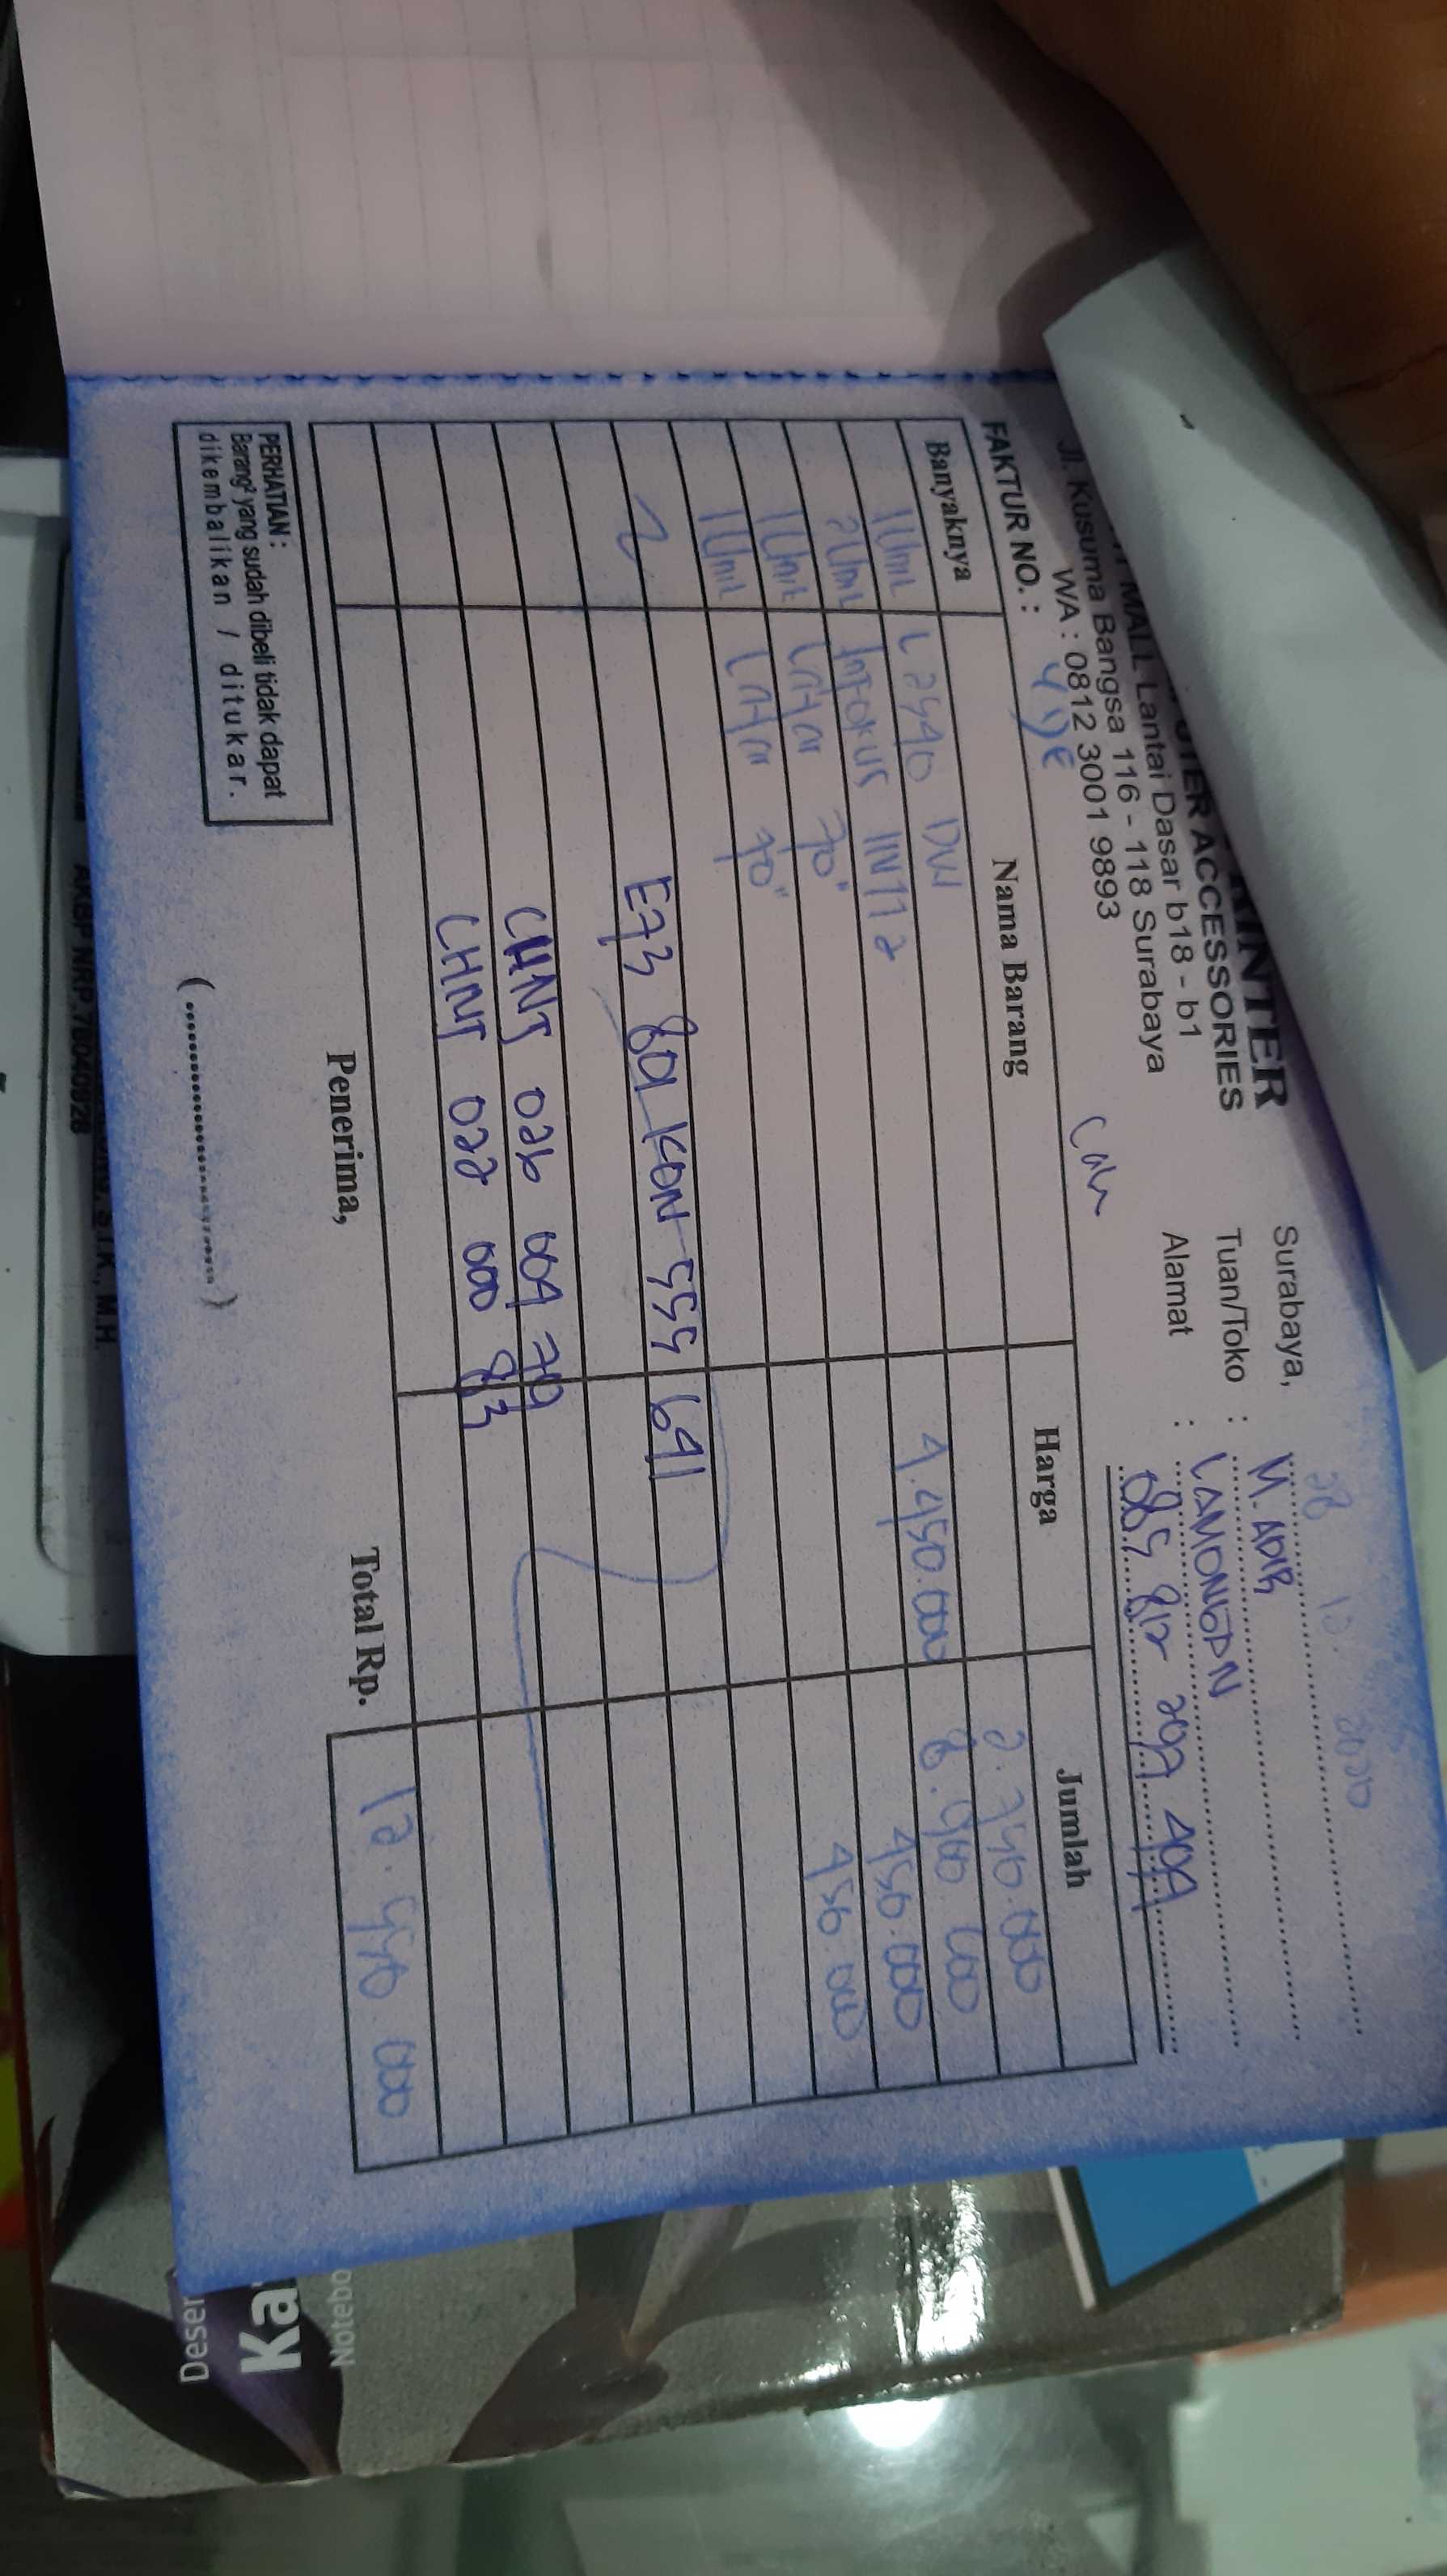 PRINTER
COMPUTER ACCESSORIES
MALL Lantai Dasar b18 - b1
Jl. Kusuma Bangsa 116 - 118 Surabaya
WA : 0812 3001 9893
Surabaya, 28 12 2020
Tuan/Toko : M. ADIB
Alamat : LAMONGAN
085 812 209 409
FAKTUR NO. :
Banyaknya Nama Barang Harga Jumlah
1 Unit L 2540 DW 2.750.000
2 Unit Infokus IN112 4.450.000 8.900.000
1 Unit Layar 70" 450.000
1 Unit Layar 70" 450.000
E73 801 KON 555 691
CHNT 026 009 70
CHNT 022 000 83
Total Rp. 12.550.000
Penerima,
(..............................)
PERHATIAN :
Barang² yang sudah dibeli tidak dapat
dikembalikan / ditukar.
AKBP NRP.78040926
S.I.K., M.H.
Deser
Ka
Notebo